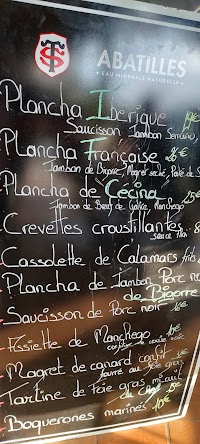 ABATILLES
EAU MINÉRALE NATURELLE
Plancha Ibérique 19€
Saucisson Jambon Serrano,
Plancha Française 26€
Jambon de Bigorre, Magret séché,
Plancha de Cecina 25€
Jambon de Bœuf de Galice, Manchego
Crevettes croustillantes
sauce thaï 8
Cassolette de Calamars frits
Plancha de Jambon Porc no
de Bigorre
Saucisson de Porc noir
Assiette de Manchego
Magret de canard confit
fourré au foie gras
Tartine de Foie gras mi cuit
du Chef
Boquerones marinés 10€